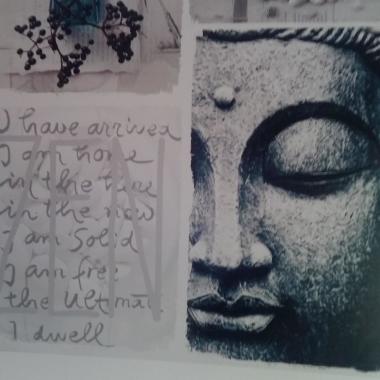 I have arrived
I am home
in the here
in the now
I am Solid
I am free
the Ultima
I dwell
ZEN